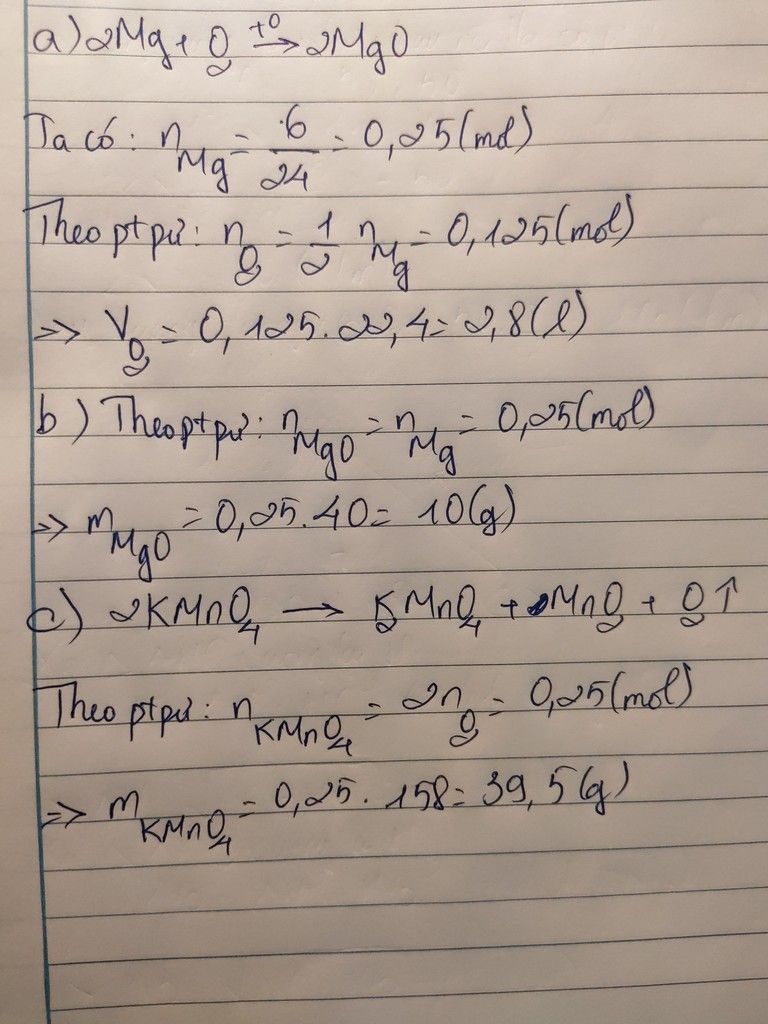 a) 2Mg + O₂ →(t°) 2MgO
Ta có: n_Mg = 6/24 = 0,25 (mol)
Theo ptpứ: n_O₂ = 1/2 n_Mg = 0,125 (mol)
=> V_O₂ = 0,125 . 22,4 = 2,8 (l)
b) Theo ptpứ: n_MgO = n_Mg = 0,25 (mol)
=> m_MgO = 0,25 . 40 = 10 (g)
c) 2KMnO₄ → K₂MnO₄ + MnO₂ + O₂↑
Theo ptpứ: n_KMnO₄ = 2n_O₂ = 0,25 (mol)
=> m_KMnO₄ = 0,25 . 158 = 39,5 (g)